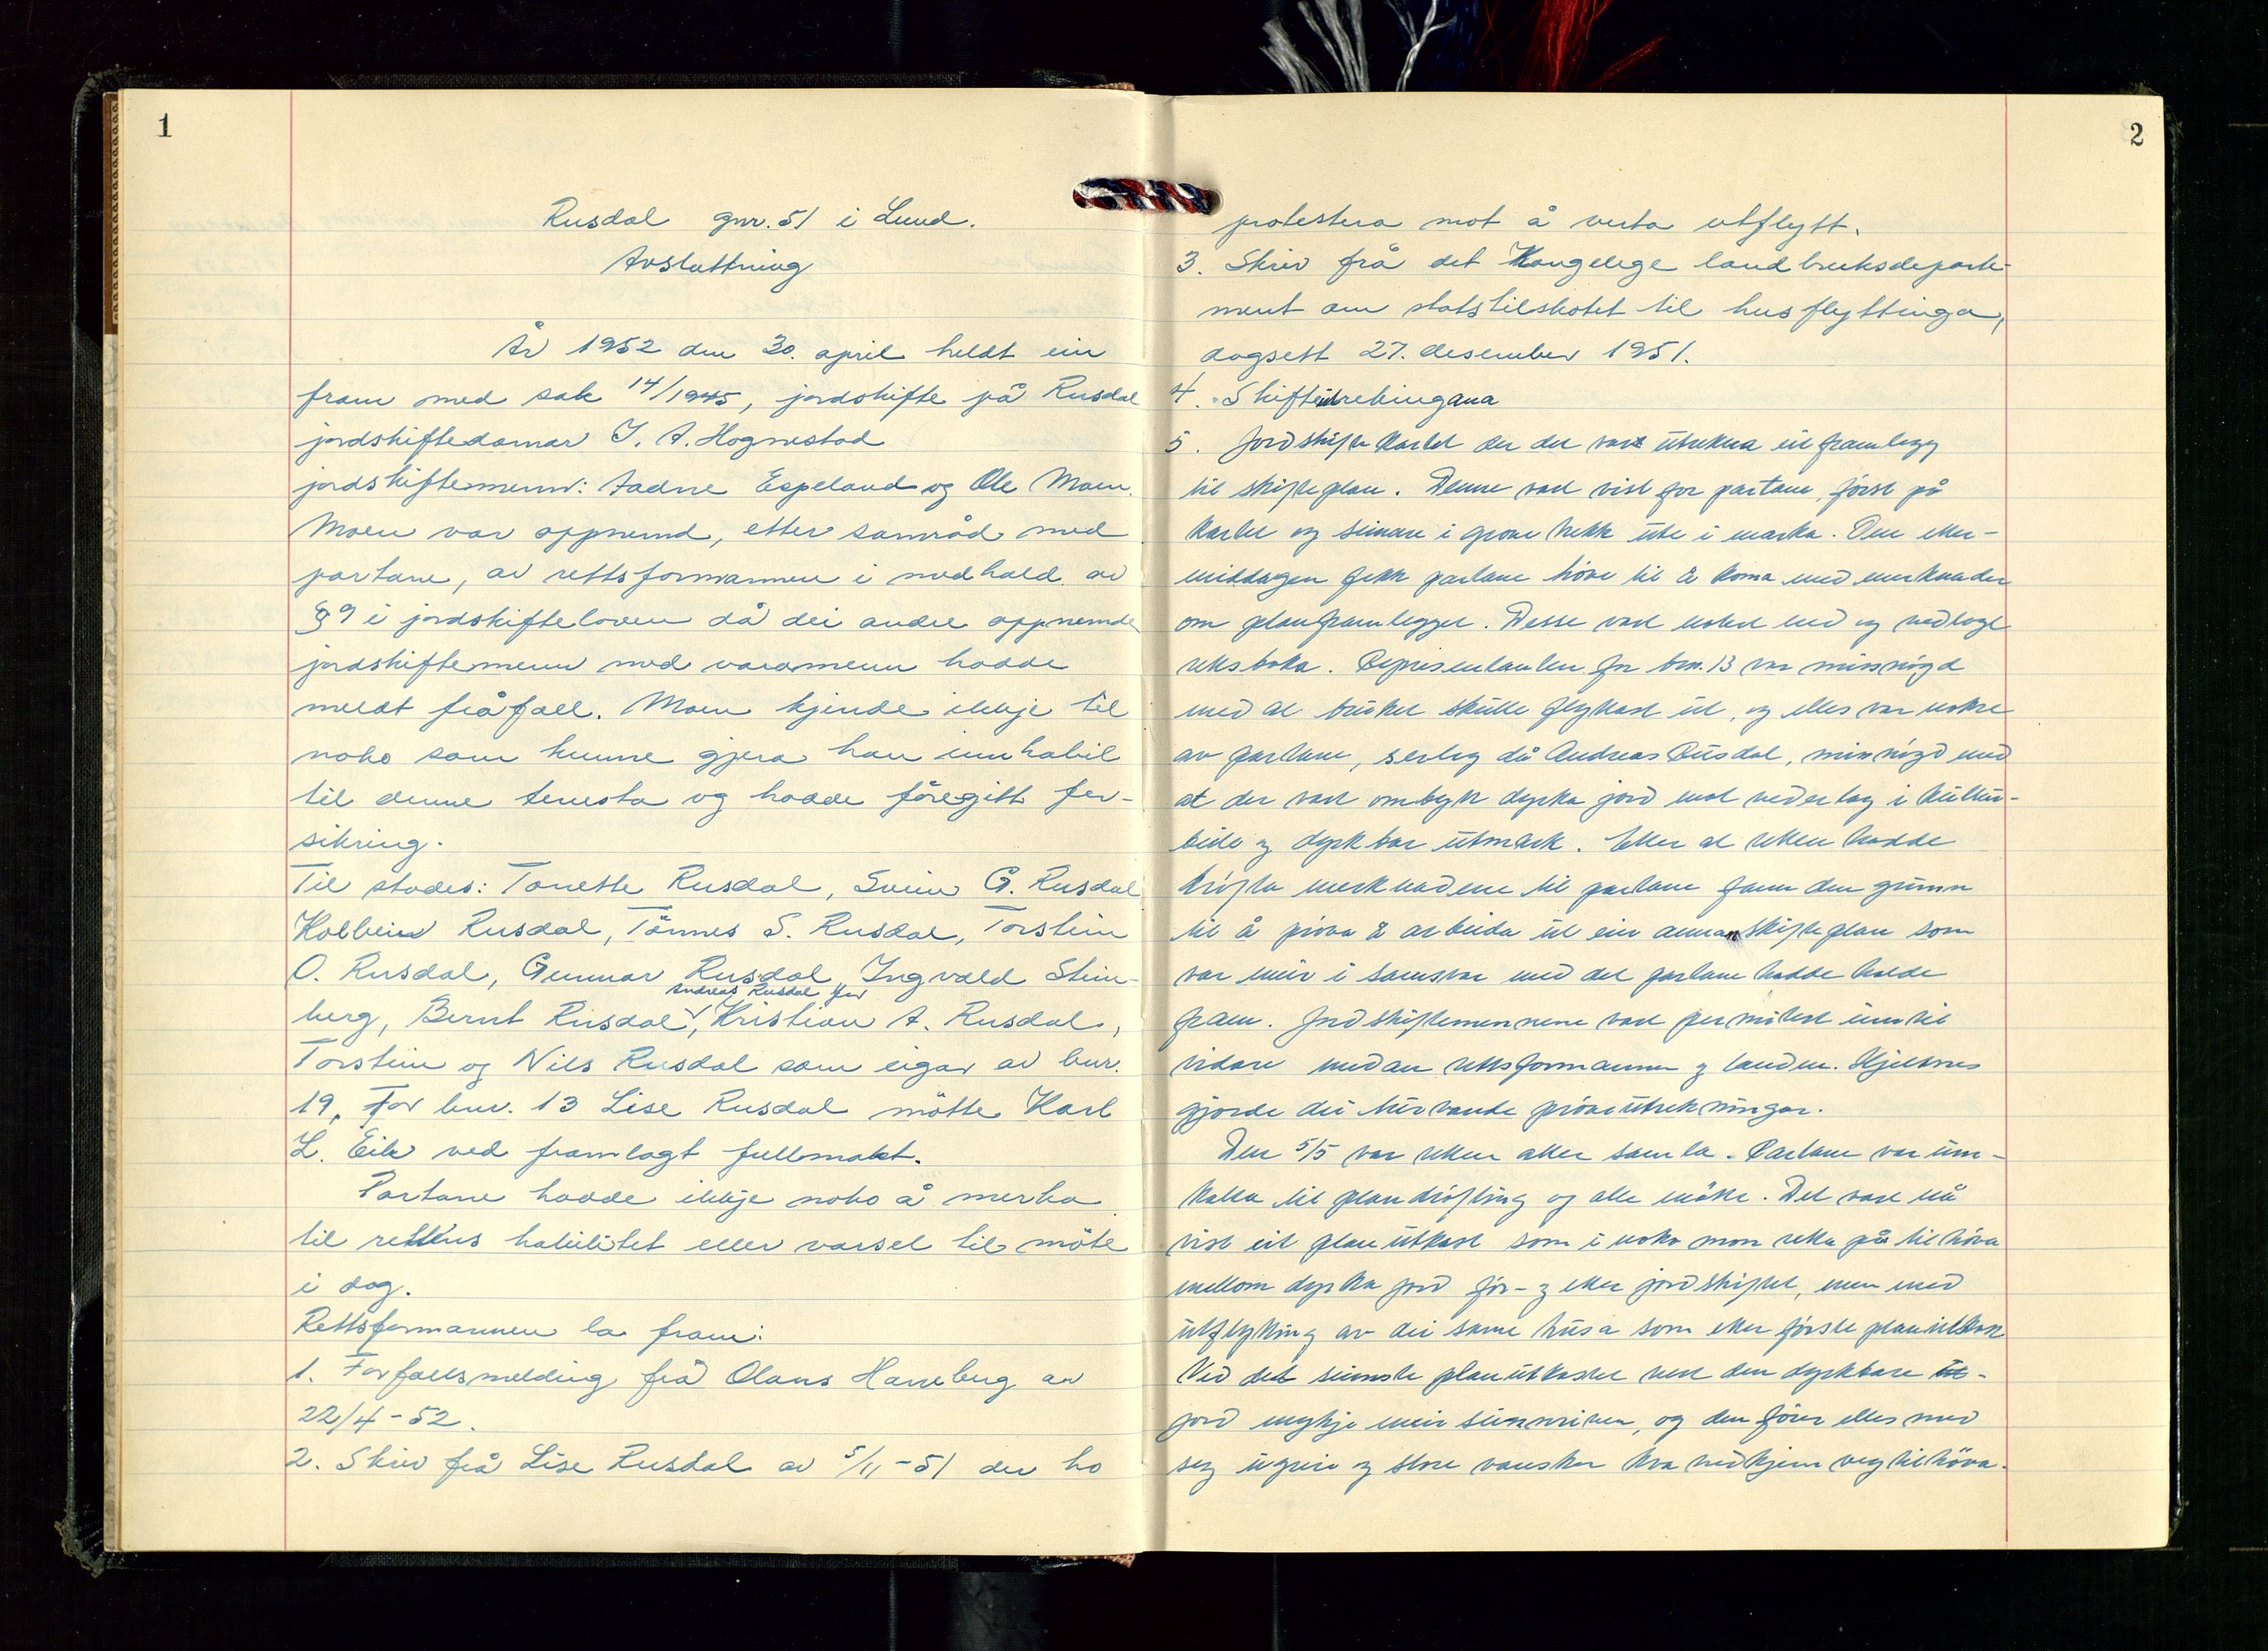 1
Rusdal gnr. 51 i Lund.
Avsluttning
År 1952 den 30. april heldt ein
fram med sak 14/1945, jordskifte på Rusdal
jordskiftedomar I. A. Hognestad
jordskiftemenn: Aadne Espeland og Ole Moen.
Moen var oppnemnd, etter samråd med
partane, av rettsformannen i medhald av
§ 9 i jordskifteloven då dei andre oppnemnde
jordskiftemenn med varamenn hadde
meldt fråfall. Moen kjende ikkje til
noko som kunne gjera han innhabil
til denne tenesta og hadde föregitt for-
sikring.
Til stades: Tonette Rusdal, Svein G. Rusdal
Kolbein Rusdal, Tönnes S. Rusdal, Torstein
O. Rusdal, Gunnar Rusdal, Ingvald Stein-
Andreas Rusdal for
berg, Bernt Rusdal, Kristian A. Rusdal,
Torstein og Nils Rusdal som eigar av bnr.
19. For bnr. 13 Lise Rusdal mötte Karl
L. Eik ved framlagt fullmakt.
Partane hadde ikkje noko å merka
til rettens habilitet eller varsel til möte
i dag.
Rettsformannen la fram:
1. Forfallsmelding frå Olaus Haneberg av
22/4-52.
2. Skriv frå Lise Rusdal av 5/11-51 der ho
2
protestera mot å verta utflytt.
3. Skriv frå det Kongelege landbruksdeparte-
ment om statstilskotet til husflyttinga,
dagsett 27. desember 1951.
4. Skifteutrekingana
5. Jordskiftekartet der det vart utrekna eit framlegg
til skifteplan. Denne vart vist for partane, först på
kartet og seinare i grove trekk ute i marka. Om etter-
middagen fekk partane höve til å koma med merknader
om planframlegget. Desse vart notert ned og vedlagt
rettsboka. Representanten for bnr. 13 var missnögd
med at bruket skulle flyttast ut, og elles var nokre
av partane, serleg då Andreas Rusdal, missnögd med
at der vart ombytt dyrka jord mot vederlag i kultur-
beite og dyrkbar utmark. Etter at retten hadde
dröfta merknadene til partane fann den grunn
til å pröva å arbeida ut ein annan skifteplan som
var meir i samsvar med det partane hadde halde
fram. Jordskiftemennene vart permitert inntil
vidare medan rettsformannen og landm. Kjelsnes
gjorde dei turvande pröveutrekningar.
Den 5/5 var retten atter samla. Partane var inn-
kalla til plandröfting og alle mötte. Det vart nå
vist eit planutkast som i noko mon retta på tilhöva
mellom dyrka jord för- og etter jordskiftet, men med
utflytting av dei same husa som etter förste planutkast
Ved det seinste planutkastet vert den dyrkbare
jord mykje meir sundriven, og den förer elles med
seg ugreie og store vansker kva vedkjem vegtilhöva.